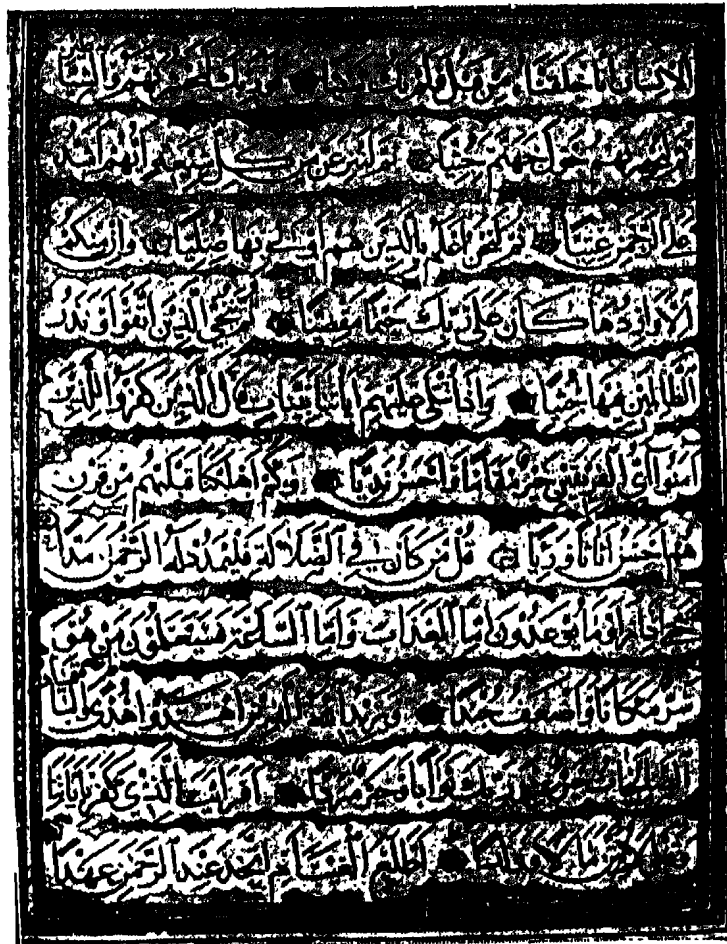 الانسان انا خلقناه من قبل ولم يك شيئا فوربك لنحشرنهم والشياطين
ثم لنحضرنهم حول جهنم جثيا ثم لننزعن من كل شيعة ايهم اشد
على الرحمن عتيا ثم لنحن اعلم بالذين هم اولى بها صليا وان منكم
الا واردها كان على ربك حتما مقضيا ثم ننجي الذين اتقوا ونذر
الظالمين فيها جثيا واذا تتلى عليهم اياتنا بينات قال الذين كفروا للذين
آمنوا اى الفريقين خير مقاما واحسن نديا وكم اهلكنا قبلهم من قرن
هم احسن اثاثا وريا قل من كان في الضلالة فليمدد له الرحمن مدا
حتى اذا راوا ما يوعدون اما العذاب واما الساعة فسيعلمون من هو
شر مكانا واضعف جندا ويزيد الله الذين اهتدوا هدى والباقيات
الصالحات خير عند ربك ثوابا وخير مردا افرايت الذي كفر باياتنا
وقال لاوتين مالا وولدا اطلع الغيب ام اتخذ عند الرحمن عهدا